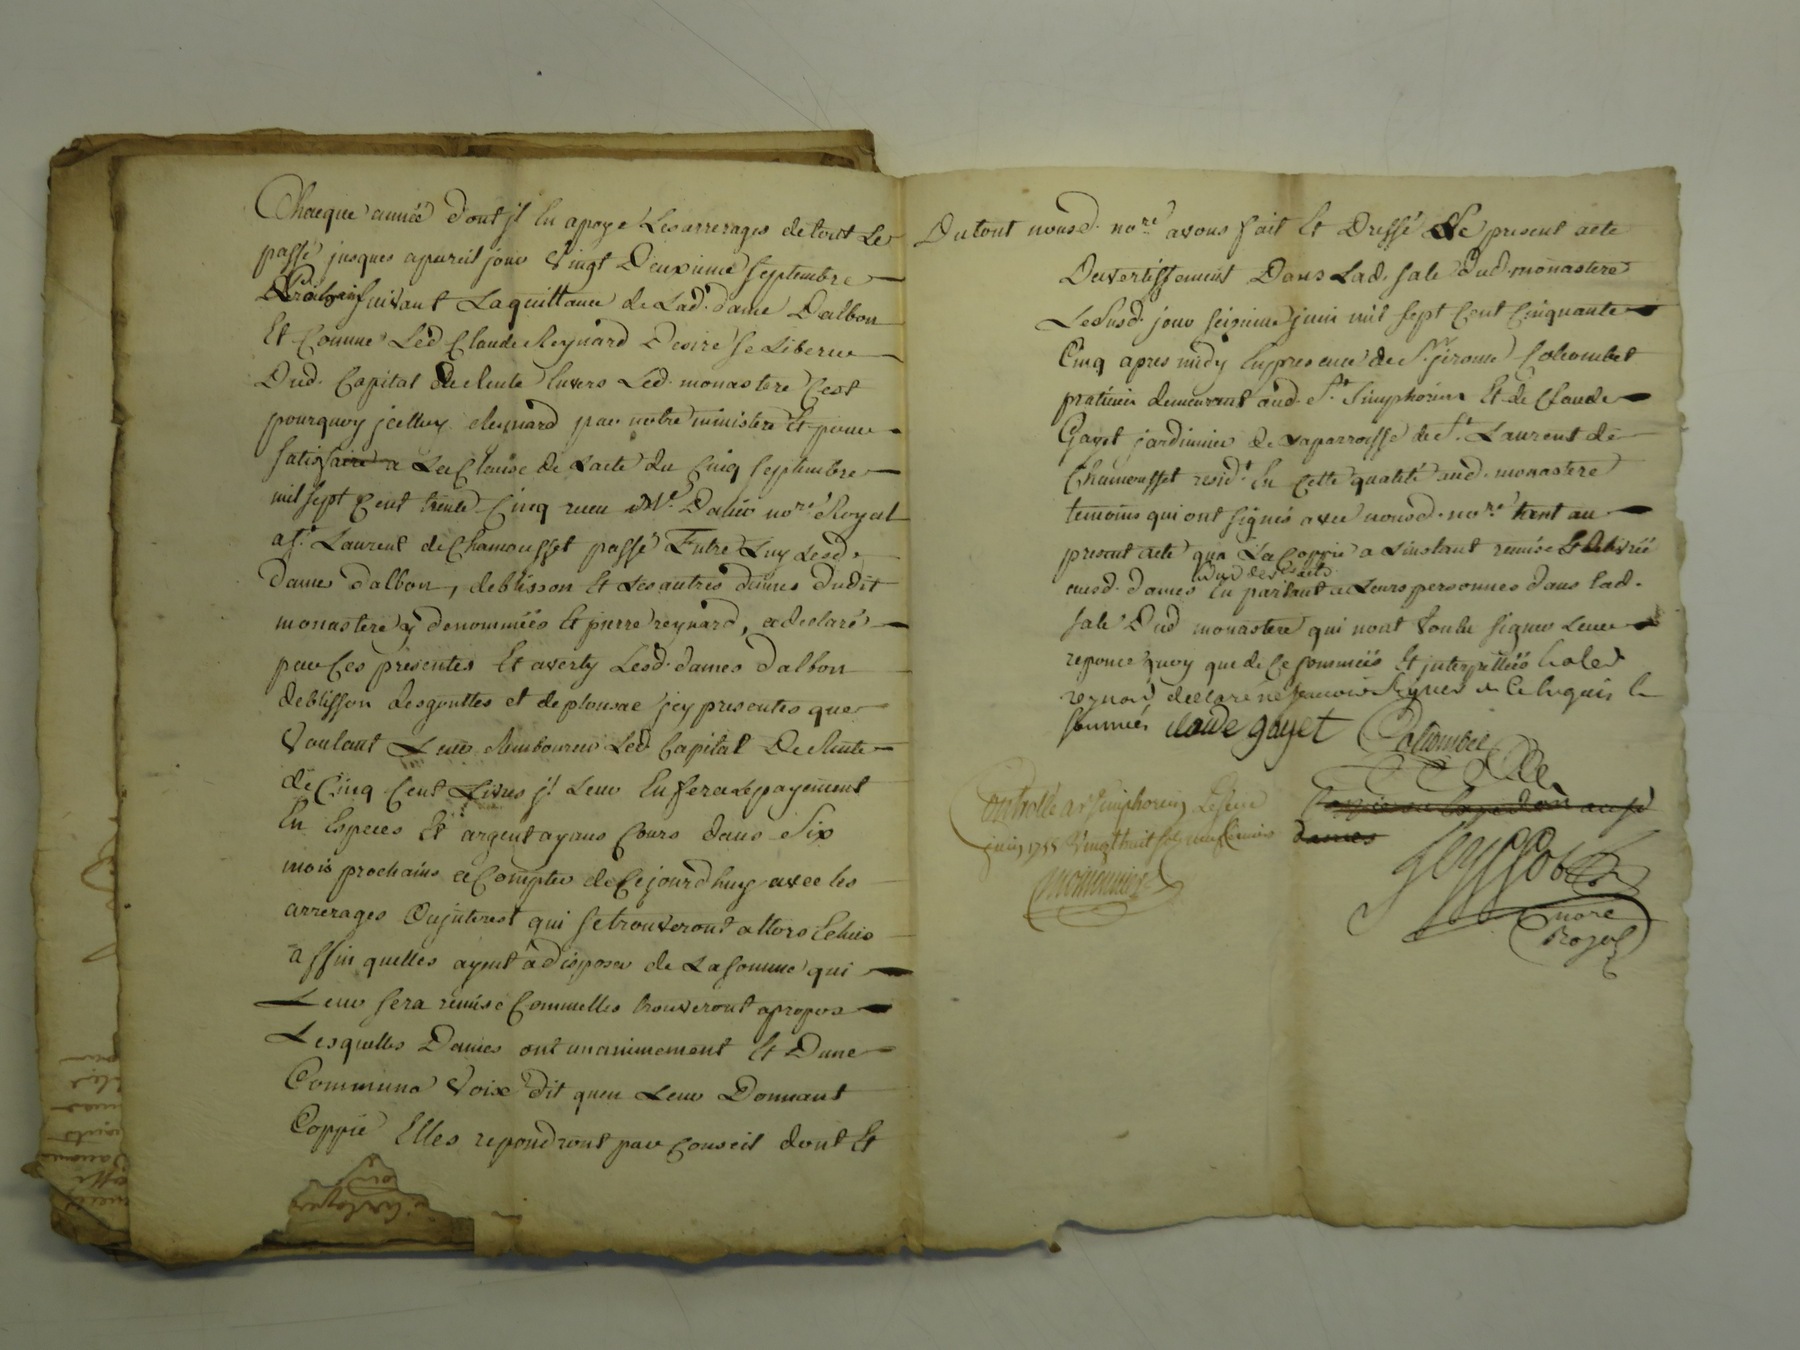 Chaeque année dont jl en apaye Les arrerages de tout Le
passé jusques apareil jour Vingt Deuxieme septembre
suivant Laquittance de Lad. dame Dalbon
Et Comme Led Claude Reynard Desire se Liberer
Dud. Capital de Rente Envers Led. monastere C'est
pourquoy jcelluy Reynard par notre ministere Et pour
satisfaire a La Clause de Lacte du Cinq septembre
mil sept Cent trente Cinq recu Me. Dalier nore. Royal
a St. Laurent de Chamousset passé Entre Luy Lesd.
Dames Dalbon, deblisson Et Les autres dames dudit
monastere y denommées Et pierre reynard, adeclaré
par Ces presentes Et averty Lesd. dames dalbon
deblisson desgouttes et deplousae jcy presentes que
Voulant Leur Rembourcer Led. Capital De Rente
de Cinq Cent Livres jl Leur En fera Le payement
En Especes Et argent ayans Cours dans Six
mois prochains a Compter de Cejourdhuy avec les
arrerages Dujnterest qui se trouveront allors Echus
affin quelles ayent a disposer de La somme qui
Leur sera remise Comme elles trouveront apropos
Lesquelles Dames ont unanimement Et Dune
Commune Voix dit quen Leur Donnant
Coppie Elles repondront par Conseil dont Et
Du tout nousd. nore. avons fait Et Dressé Le present acte
Davertissement Dans Lad. sale dud. monastere
Le Susd. jour seizieme juin mil sept Cent Cinquante
Cinq apres midy En presence de Sr. jérome Colombet
praticien demeurant aud. St. Simphorien Et de Claude
Gayet jardinier de La parroisse de St. Laurent de
Chamousset resid. En Cette qualité aud. monastere
temoins qui ont signés avec nousd. nore. tant au
present acte qua La Coppie a Linstant remise Et delivrée
ausd. dames En parlant a Leurs personnes dans Lad.
sale Dud monastere qui nont Voulu signer Leur
reponce quoy que de Ce sommées Et jnterpellées
reynard declaré ne scavoir signer de Ce Enquis Et
sommés claude gayet Colombet
Controllé a St Simphorien Le seize
juin 1755 Vingt huit sols
dames
nore
Royal